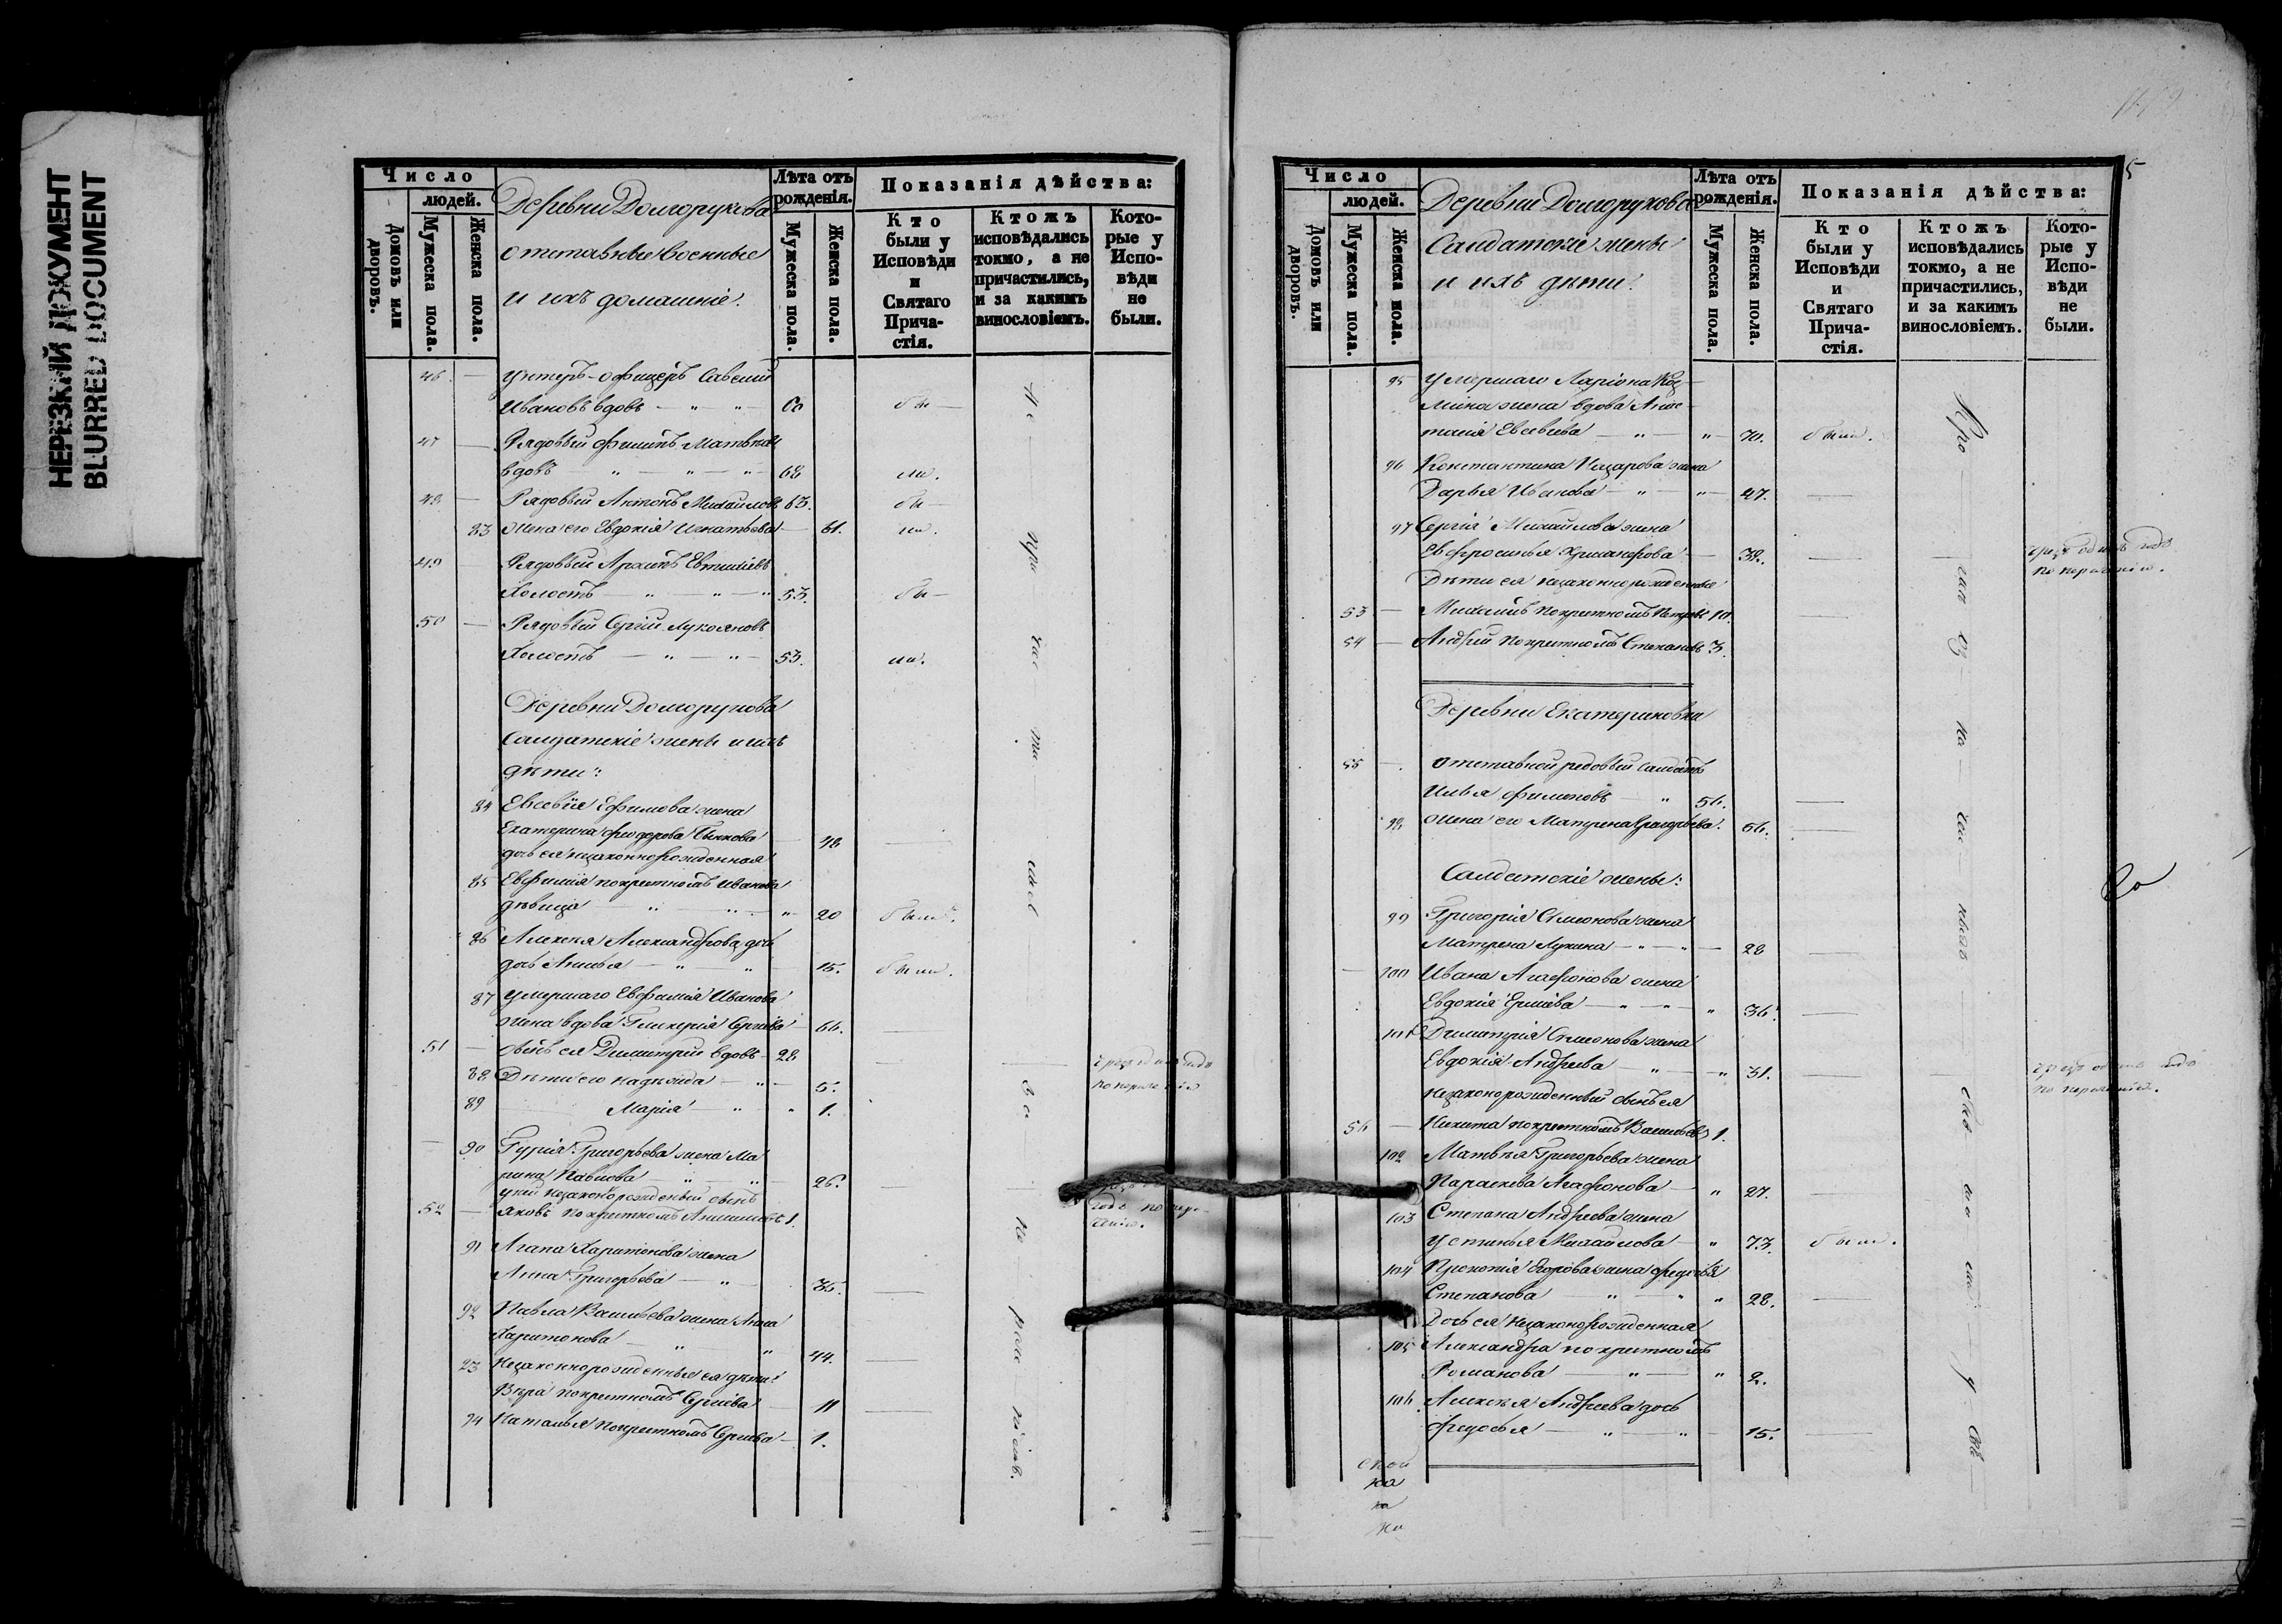 НЕРЕЗКИЙ ДОКУМЕНТ
BLURRED DOCUMENT
Число
людей.
Домовъ или дворовъ.
Мужеска пола.
Женска пола.
Деревни Долгорукова
отставные военные
и ихъ домашніе.
Лѣта отъ рожденія.
Мужеска пола.
Женска пола.
Показанія дѣйства:
Кто были у Исповѣди и Святаго Причастія.
Ктожъ исповѣдались токмо, а не причастились, и за какимъ винословіемъ.
Которые у Исповѣди не были.
46 — Унтеръ-офицеръ Савелий
Ивановъ вдовъ — " — " — 60 бы —
47 — Рядовый Филипъ Матвѣевъ
вдовъ " — " — " 68 ли.
48 — Рядовый Антонъ Михайловъ 63. бы —
83 Жена его Евдокія Игнатьева — 61. ли.
49 — Рядовый Архипъ Евтишевъ
Холостъ — " — " 53. бы —
50 — Рядовый Сергій Лукояновъ
Холостъ — " — " — 53. ли.
Деревни Долгорукова
Салдатскіе жены и ихъ
дѣти:
84 Евсевія Ефимова жена
Екатерина Феодорова — 48 —
дочь ея незаконнорожденная
85 Евфимія по крестномъ Иванова
дѣвица — " — " — 20 были.
86 Алексѣя Александрова дочь
дочь Анисья — " — " — 15. были.
87 Умершаго Евфимія Иванова
жена вдова Гликерія Сергіева — 66. —
51 — Сынъ ея Димитрий вдовъ — 28
88 Дѣти его Надежда — " — 5.
89 Марія — " " 1.
90 Гурія Григорьева жена Ма
рина Павлова " — " 26. —
у ней незаконорожденый сынъ
52 — Яковъ по крестномъ Анисимовъ 1.
91 Агапа Харитонова жена
Анна Григорьева — " 35. —
92 Павла Васильева жена Анна
Харитонова — " " 44. —
93 Незаконнорожденные ея дѣти:
Вѣра по крестномъ Сергіева 11
94 Наталья по крестномъ Сергіева — 1.
Число
людей.
Домовъ или дворовъ.
Мужеска пола.
Женска пола.
Деревни Долгорукова
Салдатскіе жены
и ихъ дѣти.
Лѣта отъ рожденія.
Мужеска пола.
Женска пола.
Показанія дѣйства:
Кто были у Исповѣди и Святаго Причастія.
Ктожъ исповѣдались токмо, а не причастились, и за какимъ винословіемъ.
Которые у Исповѣди не были.
5
95 Умершаго Ларіона Коз
мина жена вдова Анас
тасія Евсевіева — " — " — 70. были.
96 Константина Назарова жена
Дарья Иванова — " — " — 47. —
97 Сергія Михайлова жена
Евфросинья — 32. —
Дѣти ея незаконнорожденные
53 — Михаилъ по крестномъ Петровъ 10. —
54 — Андрей по крестномъ Степановъ 3.
Деревни Екатериновки
55 — Отставной рядовый салдатъ
Илья Филиповъ — " 56. —
98 Жена его Матрена Григорьева. 56.
Салдатскіе жены:
99 Григорія Симеонова жена
Матрена Лукина — " — " — 28 —
100 Ивана Агафонова жена
Евдокія — " — " — " 36. —
101 Димитрія Симеонова жена
Евдокія Андреева — " — " 31. —
незаконорожденный сынъ ея
56 — Никита по крестномъ Васильевъ 1.
102 Матвѣя Григорьева жена
Параскева Агафонова — " 27. —
103 Степана Андреева жена
Устинья Михайлова — " 73. были.
104 Прокопія Егорова жена Федосья
Степанова — " — " " 28. —
Дочь ея незаконорожденная
105 Александра по крестномъ
Романова — " — " 2.
106 Алексѣя Андреева дочь
Федосья — " — " — 15. —